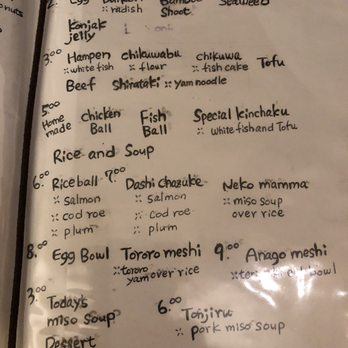 2. Egg Daikon Bamboo Seaweed
※radish Shoot
Konjak
jelly
3.00 Hampen chikuwabu chikuwa Tofu
※white fish ※flour ※fish cake
Beef Shirataki ※yam noodle
5.00 Home made Chicken Ball Fish Ball Special kinchaku
※white fish and Tofu
Rice and Soup
6.00 Rice ball 7.00 Dashi chazuke Neko mamma
※salmon ※salmon ※miso soup
※cod roe ※cod roe over rice
※plum ※plum
8.00 Egg Bowl Tororo meshi 9.00 Anago meshi
※tororo yam over rice bowl
3.00 Today's miso soup 6.00 Tonjiru
※pork miso soup
Dessert